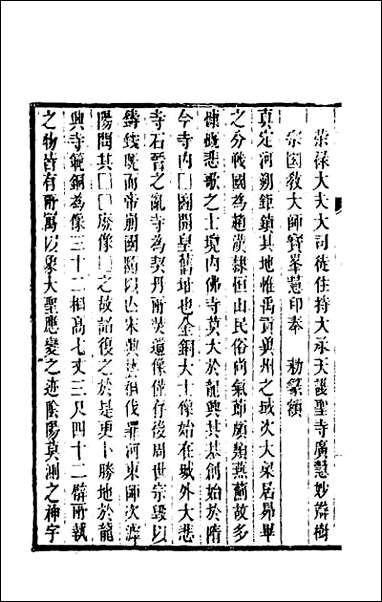 榮祿大夫大司徒住持大承天護聖寺廣慧妙辯樹
宗圓教大師寶峯慧印奉　勅篆額
真定河朔鉅鎮其地惟禹貢冀州之域次大梁居昴畢
之分戰國為趙漢隸恒山民俗尚氣節頗類燕薊故多
慷慨悲歌之士境内佛寺莫大於龍興其基創始於隋
今寺内□園開皇舊址也金銅大士像始在城外大悲
寺石晉之亂寺為契丹所燬遺像僅存後周世宗毀以
鑄錢既而帝崩國隨以亡宋興藝祖伐罪河東師次滹
陽問其□□廢像□之故詔復之於是更卜勝地於龍
興寺範銅為像三十二相高七丈三尺四十二臂所執
之物皆有所寓以象大聖應變之迹陰陽莫測之神宇